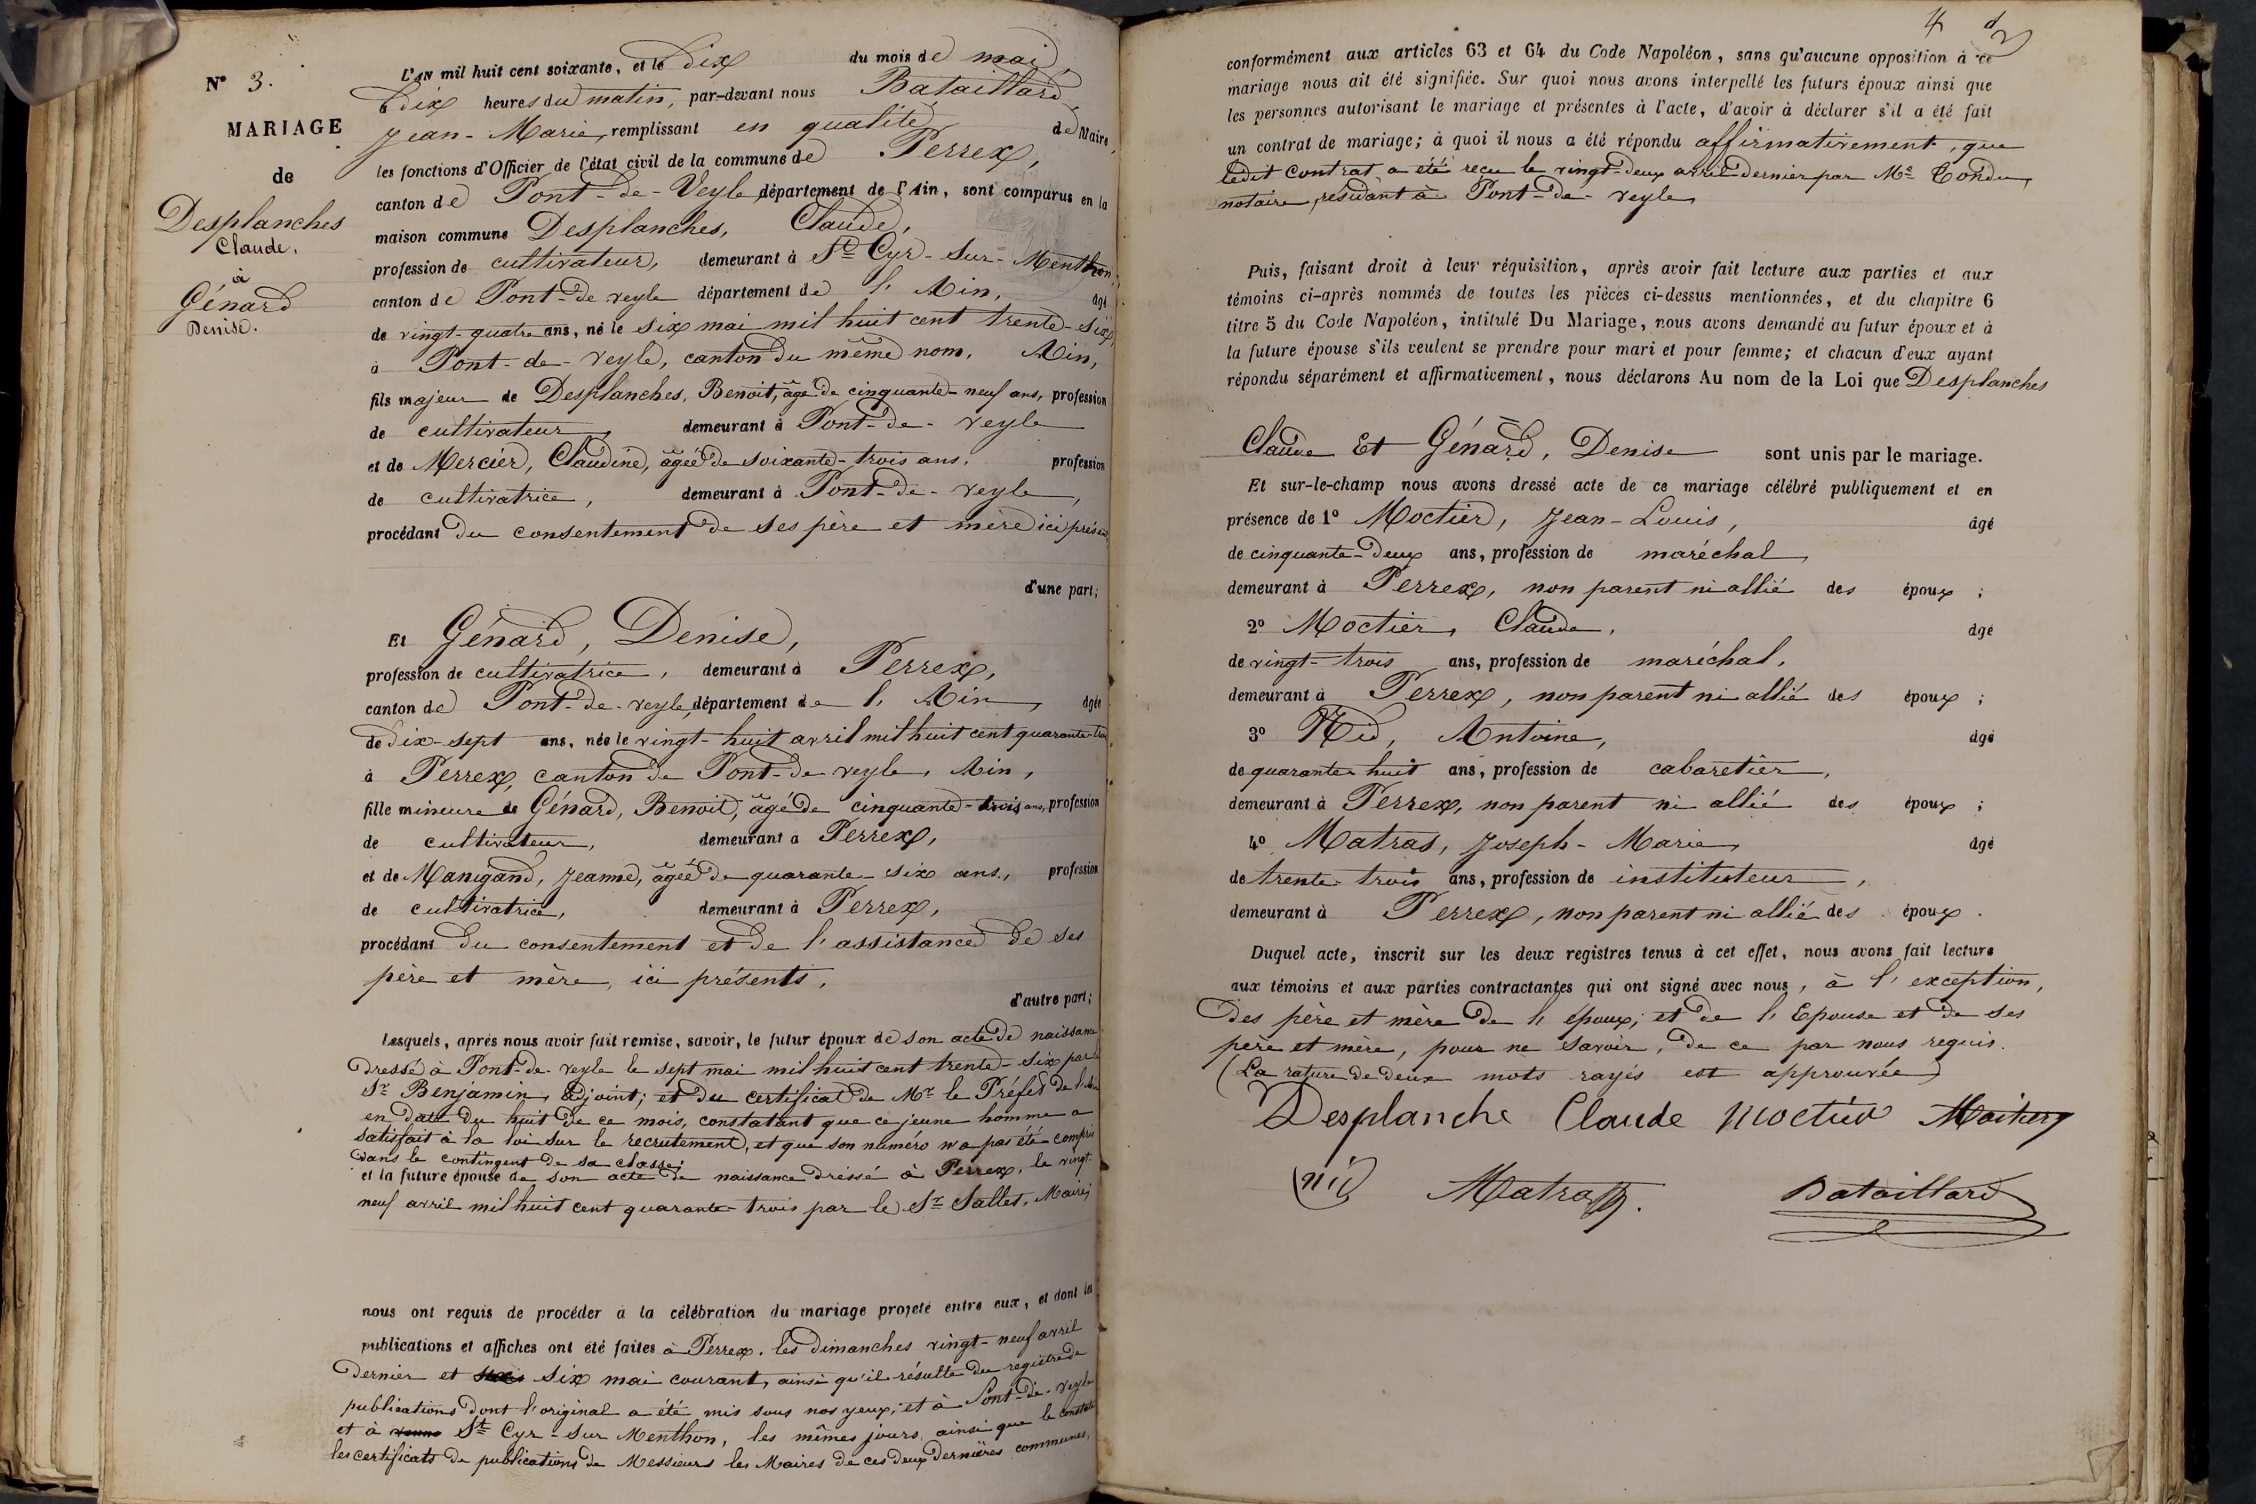 N° 3.
MARIAGE
de
Desplanches
Claude.
à
Génard
Denise.
L'an mil huit cent soixante, et le dix du mois de mai,
à dix heures du matin, par-devant nous Bataillard
Jean-Marie, remplissant en qualité de Maire,
les fonctions d'Officier de l'état civil de la commune de Perrex,
canton de Pont-de-Veyle, département de l'Ain, sont comparus en la
maison commune Desplanches, Claude,
profession de cultivateur, demeurant à St Cyr-sur-Menthon,
canton de Pont-de veyle département de l'Ain, âgé
de vingt-quatre ans, né le six mai mil huit cent trente-six,
à Pont-de-veyle, canton du même nom, Ain,
fils majeur de Desplanches, Benoit, âgé de cinquante-neuf ans, profession
de cultivateur, demeurant à Pont-de-veyle
et de Mercier, Claudine, âgée de soixante-trois ans, profession
de cultivatrice, demeurant à Pont-de-veyle,
procédant du consentement de ses père et mère ici
d'une part;
Et Génard, Denise,
profession de cultivatrice, demeurant à Perrex,
canton de Pont-de-veyle, département de l'Ain, âgée
de dix-sept ans, née le vingt-huit avril mil huit cent quarante-trois
à Perrex, canton de Pont-de veyle, Ain,
fille mineure de Génard, Benoit, âgé de cinquante-trois ans, profession
de cultivateur, demeurant à Perrex,
et de Manigand, Jeanne, âgée de quarante-six ans, profession
de cultivatrice, demeurant à Perrex,
procédant du consentement et de l'assistance de ses
père et mère, ici présents,
d'autre part;
Lesquels, après nous avoir fait remise, savoir, le futur époux de son acte de naissance
dressé à Pont-de-veyle le sept mai mil huit cent trente-six par le
Sr Benjamin, adjoint; et du certificat de Mr le Préfet de l'Ain
en date du huit de ce mois, constatant que ce jeune homme a
satisfait à la loi sur le recrutement, et que son numéro n'a pas été compris
dans le contingent de sa classe;
et la future épouse de son acte de naissance dressé à Perrex, le vingt-
neuf avril mil huit cent quarante-trois par le Sr Sallet, Maire;
nous ont requis de procéder à la célébration du mariage projeté entre eux, et dont les
publications et affiches ont été faites à Perrex, les dimanches vingt-neuf avril
dernier et six mai courant, ainsi qu'il résulte du registre de
publications dont l'original a été mis sous nos yeux; et à Pont-de-veyle
et à St Cyr-sur Menthon, les mêmes jours, ainsi que le constate
les certificats de publications de Messieurs les Maires de ces deux dernières communes,
4
conformément aux articles 63 et 64 du Code Napoléon, sans qu'aucune opposition à ce
mariage nous ait été signifiée. Sur quoi nous avons interpellé les futurs époux ainsi que
les personnes autorisant le mariage et présentes à l'acte, d'avoir à déclarer s'il a été fait
un contrat de mariage; à quoi il nous a été répondu affirmativement, que
ledit contrat a été reçu le vingt-deux avril dernier par Me Condu,
notaire, résidant à Pont-de-veyle
Puis, faisant droit à leur réquisition, après avoir fait lecture aux parties et aux
témoins ci-après nommés de toutes les pièces ci-dessus mentionnées, et du chapitre 6
titre 5 du Code Napoléon, intitulé Du Mariage, nous avons demandé au futur époux et à
la future épouse s'ils veulent se prendre pour mari et pour femme; et chacun d'eux ayant
répondu séparément et affirmativement, nous déclarons Au nom de la Loi que Desplanches
Claude Et Génard, Denise sont unis par le mariage.
Et sur-le-champ nous avons dressé acte de ce mariage célébré publiquement et en
présence de 1° Moctier, Jean-Louis, âgé
de cinquante-deux ans, profession de maréchal,
demeurant à Perrex, non parent ni allié des époux;
2° Moctier, Claude, âgé
de vingt-trois ans, profession de maréchal,
demeurant à Perrex, non parent ni allié des époux;
3° Nid, Antoine, âgé
de quarante-huit ans, profession de cabaretier,
demeurant à Perrex, non parent ni allié des époux;
4° Matras, Joseph-Marie, âgé
de trente-trois ans, profession de instituteur,
demeurant à Perrex, non parent ni allié des époux.
Duquel acte, inscrit sur les deux registres tenus à cet effet, nous avons fait lecture
aux témoins et aux parties contractantes qui ont signé avec nous, à l'exception,
des père et mère de l'époux; et de l'Epouse et de ses
père et mère, pour ne savoir, de ce par nous requis.
(La rature de deux mots rayés est approuvée)
Desplanche Claude Moctier
nid Matras Bataillard